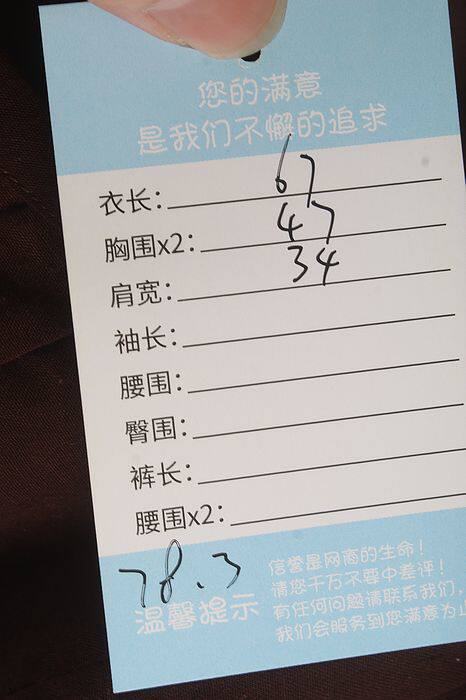 您的满意
是我们不懈的追求
衣长: 67
胸围x2: 47
肩宽: 34
袖长:
腰围:
臀围:
裤长:
腰围x2:
78.3
温馨提示
信誉是网商的生命!
请您千万不要中差评!
有任何问题请联系我们,
我们会服务到您满意为止